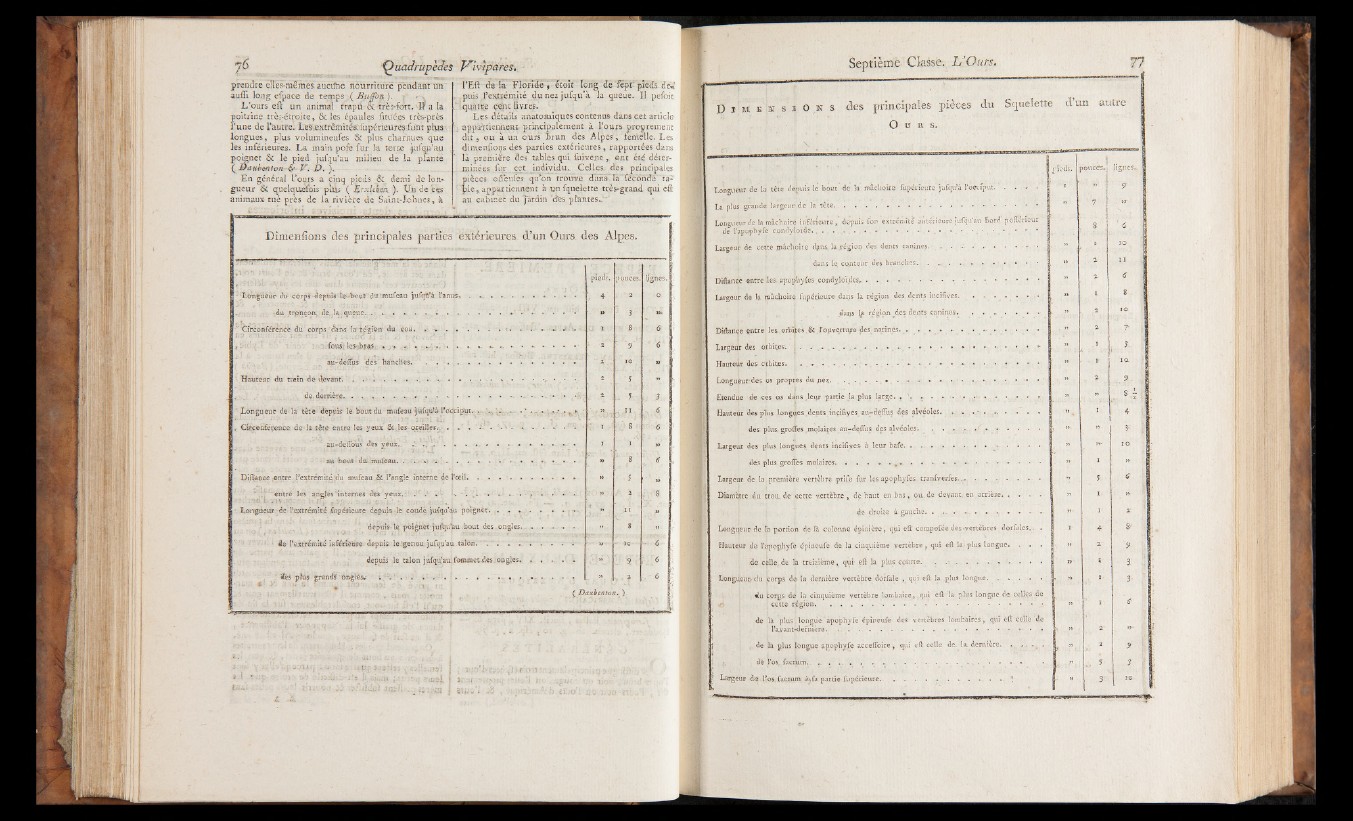 76 Quadrupèdes Vivipares.
prendre elles-mêmes aucune nourriture pendant un
aussi long espace de temps ( Buffon ).
L'ours est un animal trapu & très-fort. Il a la
poitrine très-étroite, & les épaules situées très-près
l'une de l'autre. Les extrêmités supérieures sont plus
longues, plus volumineuses & plus charnues que
les inférieures. La main pose sur la terre jusqu'au
poignet & le pied jusqu'au milieu de la plante
( Daubenton & V. D. ).
En général l'ours a cinq pieds & demi de lon-
gueur & quelquefois plus ( Erxleben ). Un de ces
animaux tué près de la rivière de Saint-Johnes, à
l'Est de la Floride, étoit long de sept pieds de-
puis l'extrémité du nez jusqu'à la queue. Il pesoit
quatre cens livres.
Les détails anatomiques contenus dans cet article
appartiennent principalement à l'ours proprement
dit, ou à un ours brun des Alpes, femelle. Les
dimensions des parties extérieures, rapportées dans
la première des tables qui suivent, ont été déter-
minées sur cet individu. Celles des principales
pièces osseuses qu'on trouve dans la seconde ta-
ble, appartiennent à un squelette très-grand qui est
au cabinet du jardin des plantes.
Dimensions des principales parties extérieures d'un Ours des Alpes.
pieds. pouces. lignes.
Longueur du corps depuis le bout du museau jusqu'à l'anus. 4 2 0
du tronçon de la queue. » 3 »
Circonférence du corps dans la région du cou. 1 8 6
sous les bras. 2 9 6
au-dessus des hanches. 2 10 »
Hauteur du train de devant. 2 5 »
de derrière. 2 5 3
Longueur de la tête depuis le bout du museau jusqu'à l'occiput. » 11 6
Circonférence de la tête entre les yeux & les oreilles. 1 8 6
au-dessous des yeux. 1 1 »
au bout du museau. » 8 6
Distance entre l'extrémité du museau & l'angle interne de l'œil. » 5 »
entre les angles internes des yeux. » 2 8
Longueur de l'extrémité supérieure depuis le coude jusqu'au poignet. » 11 »
depuis le poignet jusqu'au bout des ongles. » 8 »
de l'extrémité inférieure depuis le genou jusqu'au talon. » 10 6
depuis le talon jusqu'au sommet des ongles. » 9 6
des plus grands ongles. » 2 6
( Daubenton. )
Septième Classe. L'Ours. 77
DIMENSIONS des principales pièces du Squelette d'un autre
OURS.
pieds. pouces. lignes.
Longueur de la tête depuis le bout de la mâchoire supérieure jusqu'à l'occiput. 1 » 9
La plus grande largeur de la tête. » 7 »
Longueur de la mâchoire inférieure, depuis son extrémité antérieure jusqu'au bord postérieur
de l'apophyse condyloïde. 8 6
Largeur de cette mâchoire dans la région des dents canines. » 2 10
dans le contour des branches. » 2 11
Distance entre les apophyses condyloïdes. » 2 6
Largeur de la mâchoire supérieure dans la région des dents incisives. » 1 8
dans la région des dents canines. » 2 10
Distance entre les orbites & l'ouverture des narines. » 2 7
Largeur des orbites. » 1 5
Hauteur des orbites. » 1 10
Longueur des os propres du nez. » 2 9
Etendue de ces os dans leur partie la plus large. » » 8 1/2
Hauteur des plus longues dents incisives au-dessus des alvéoles. » 1 4
des plus grosses molaires au-dessus des alvéoles. » » 5
Largeur des plus longues dents incisives à leur base. » » 10
des plus grosses molaires. » 1 »
Largeur de la première vertèbre prise sur les apophyses transverses. » 5 6
Diamètre du trou de cette vertèbre, de haut en bas, ou de devant en arrière. » 1 »
de droite à gauche. » 1 2
Longueur de la portion de la colonne épinière, qui est composée des vertèbres dorsales. 1 4 8
Hauteur de l'apophyse épineuse de la cinquième vertèbre, qui est la plus longue. » 2 9
de celle de la treizième, qui est la plus courte. » 1 3
Longueur du corps de la dernière vertèbre dorsale, qui est la plus longue. » 1 3
du corps de la cinquième vertèbre lombaire, qui est la plus longue de celles de
cette région. » 1 6
de la plus longue apophyse épineuse des vertèbres lombaires, qui est celle de
l'avant-dernière. » 2 »
de la plus longue apophyse accessoire, qui est celle de la dernière. » 2 9
de l'os sacrum. » 5 3
Largeur de l'os sacrum à sa partie supérieure. » 3 10